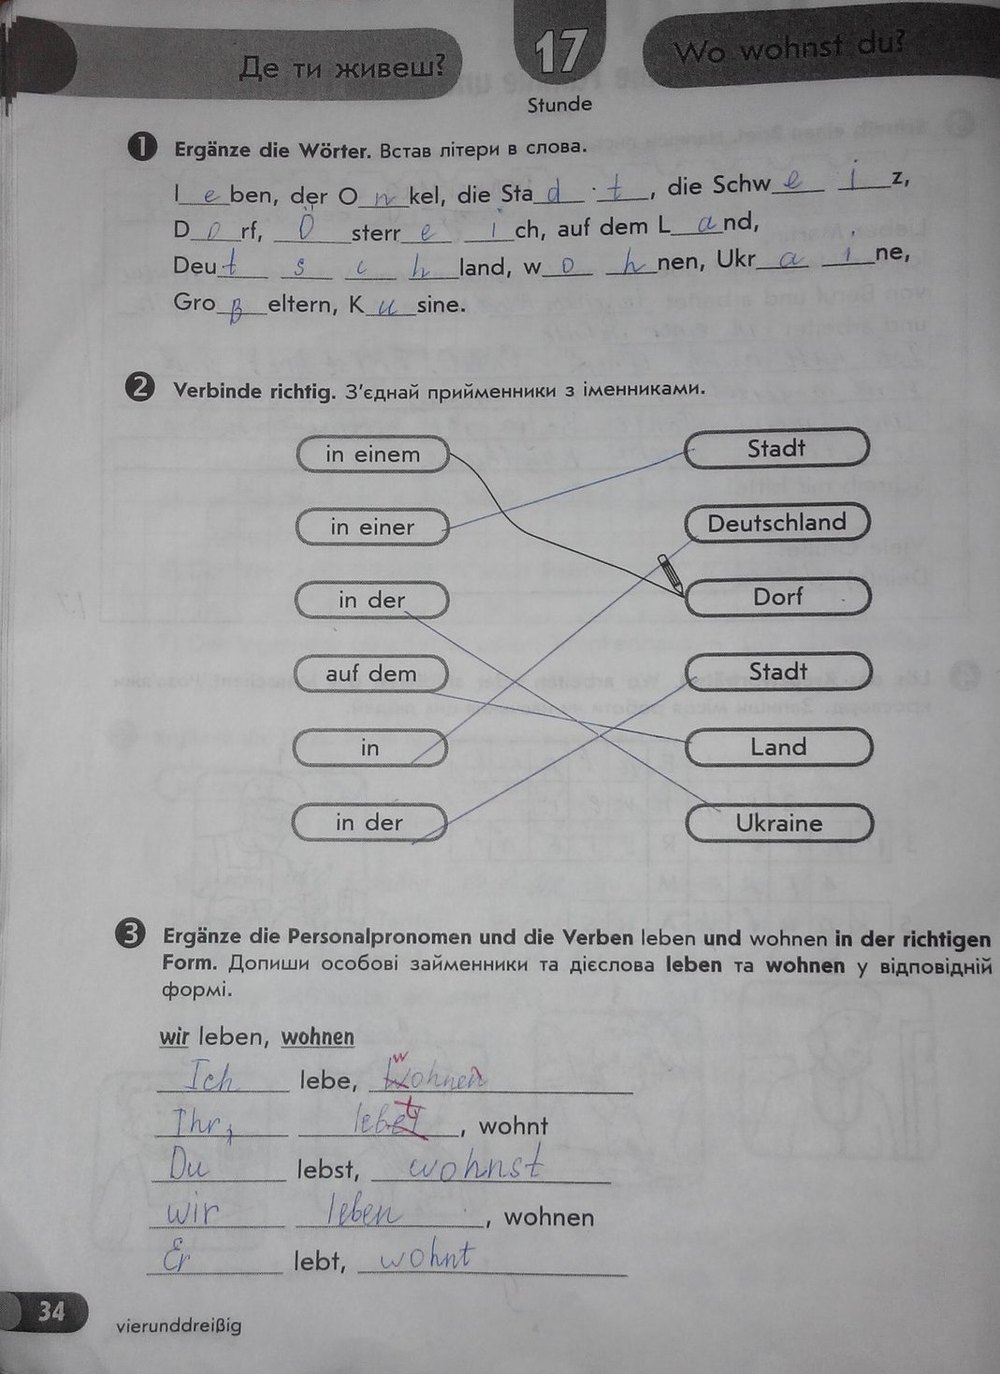 Де ти живеш?
17
Stunde
Wo wohnst du?
1 Ergänze die Wörter. Встав літери в слова.
l e ben, der O n kel, die Sta d t, die Schw e i z,
D o rf, Ö sterr e i ch, auf dem L a nd,
Deu t s c h land, w o h nen, Ukr a i ne,
Gro ß eltern, K u sine.
2 Verbinde richtig. З'єднай прийменники з іменниками.
in einem Stadt
in einer Deutschland
in der Dorf
auf dem Stadt
in Land
in der Ukraine
3 Ergänze die Personalpronomen und die Verben leben und wohnen in der richtigen
Form. Допиши особові займенники та дієслова leben та wohnen у відповідній
формі.
wir leben, wohnen
Ich lebe, wohnen
Ihr lebet, wohnt
Du lebst, wohnst
wir leben, wohnen
Er lebt, wohnt
34
vierunddreißig